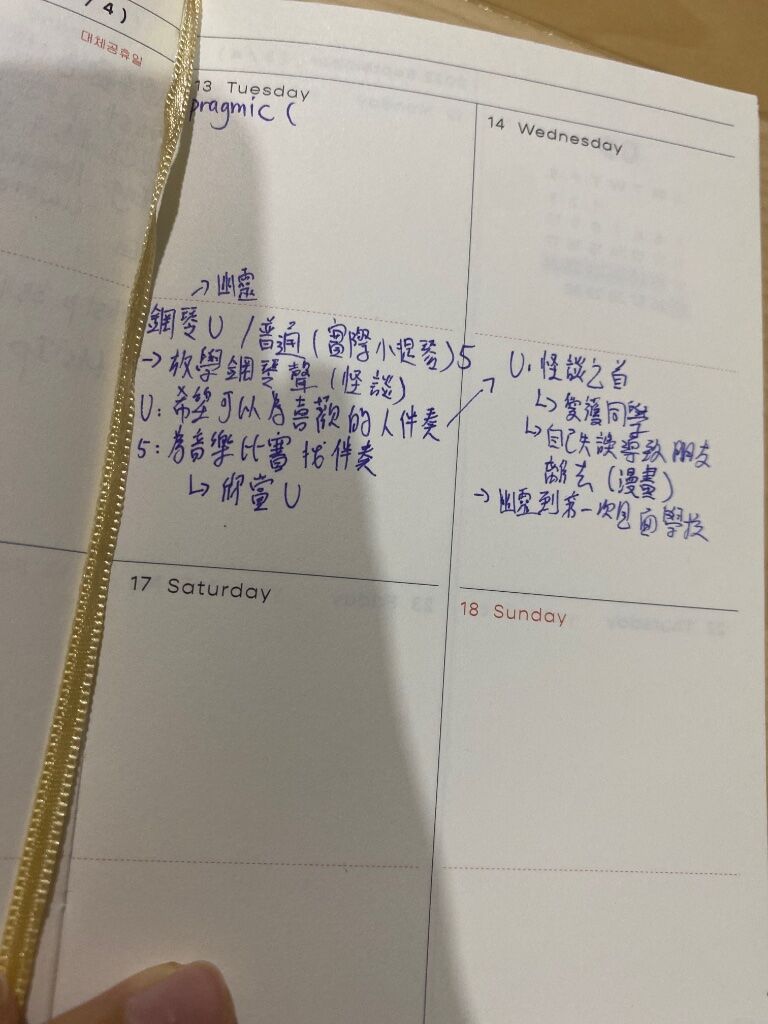 /4)
대체공휴일
13 Tuesday
pragmic (
→幽靈
鋼琴U /普通(實際小提琴)5
→放學鋼琴聲(怪談)
U:希望可以為喜歡的人伴奏
5:為音樂比賽找伴奏
↳欣賞U
14 Wednesday
U:怪談之首
↳愛護同學
↳自己失誤導致朋友
離去(漫畫)
→幽靈到第一次見面學校
17 Saturday
18 Sunday